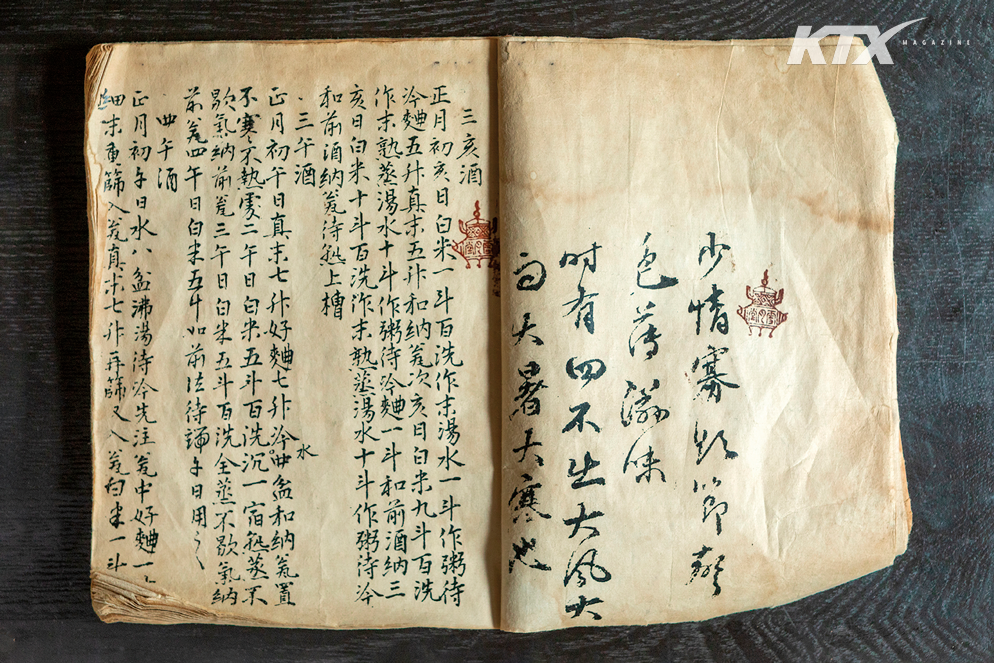 KTX
MAGAZINE
少情寡慾節聲
色薄滋味
时有四不出大风大
雨大暑大寒也
三亥酒
正月初亥日白米一斗百洗作末湯水一斗作粥待
冷麯五升真末五升和納瓮次亥日白米九斗百洗
作末熟蒸湯水十斗作粥待冷麯一斗和前酒納三
亥日白米十斗百洗作末熟蒸湯水十斗作粥待冷
和前酒納瓮待熟上槽
三午酒
正月初午日真末七升好麯七升冷水四盆和納瓮置
不寒不熱處二午日白米五斗百洗沉一宿熟蒸不
歇氣納前瓮三午日白米五斗百洗全蒸不歇氣納
前瓮四午日白米五斗如前法待端午日用之
四午酒
正月初午日水八盆沸湯待冷先注瓮中好麯一
細末重篩入瓮真末七升再篩又入瓮白米一斗